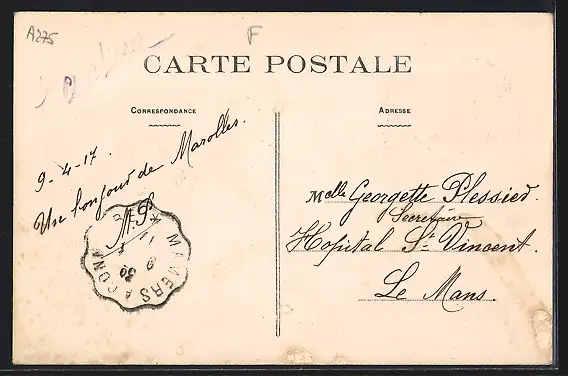 A275
F
CARTE POSTALE
CORRESPONDANCE
ADRESSE
9-4-17.
Un bonjour de Marolles.
A.P.
MAMERS A CONN
Melle Georgette Plessier.
Secrétaire
Hopital St Vincent.
Le Mans.